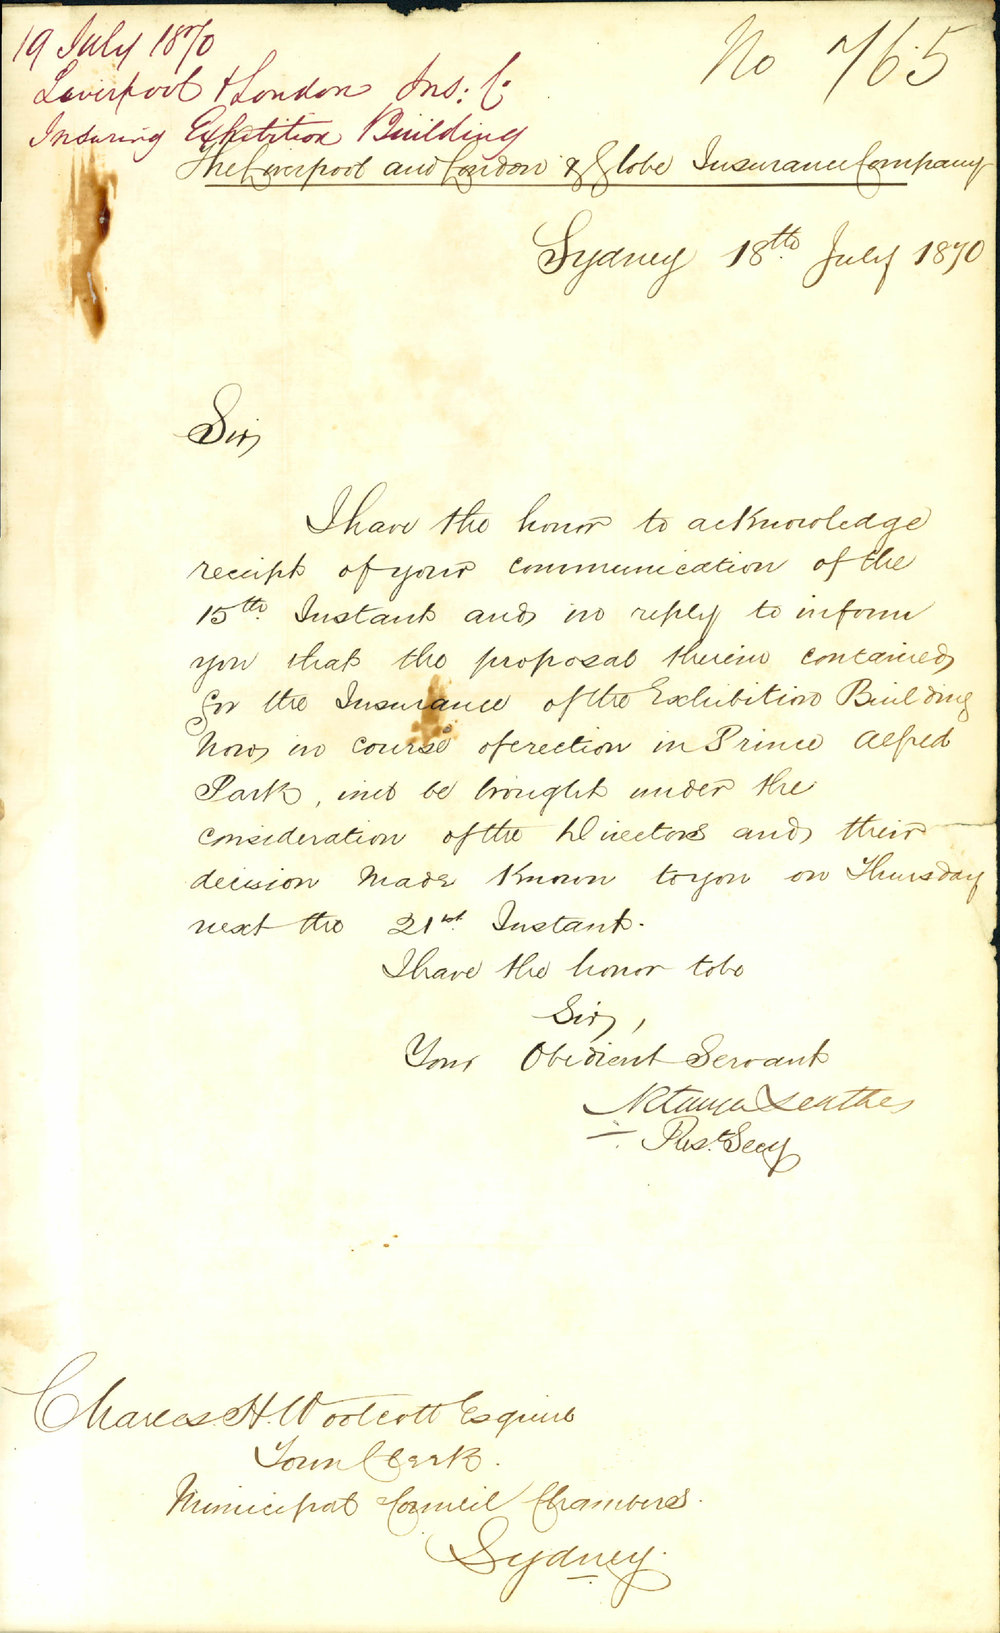 19 July 1870
Liverpool & London Ins: C:
Insuring Exhibition Building
No 765
The Liverpool and London & Globe Insurance Company
Sydney 18th July 1870
Sir,
I have the honor to acknowledge
receipt of your communication of the
15th Instant and in reply to inform
you that the proposal therein contained
for the Insurance of the Exhibition Building
now in course of erection in Prince Alfred
Park, will be brought under the
consideration of the Directors and their
decision made known to you on Thursday
next the 21st Instant.
I have the honor to be
Sir,
Your Obedient Servant
Leathes
Rest. Secy
Charles H. Woolcott Esquire
Town Clerk.
Municipal Council Chambers.
Sydney.